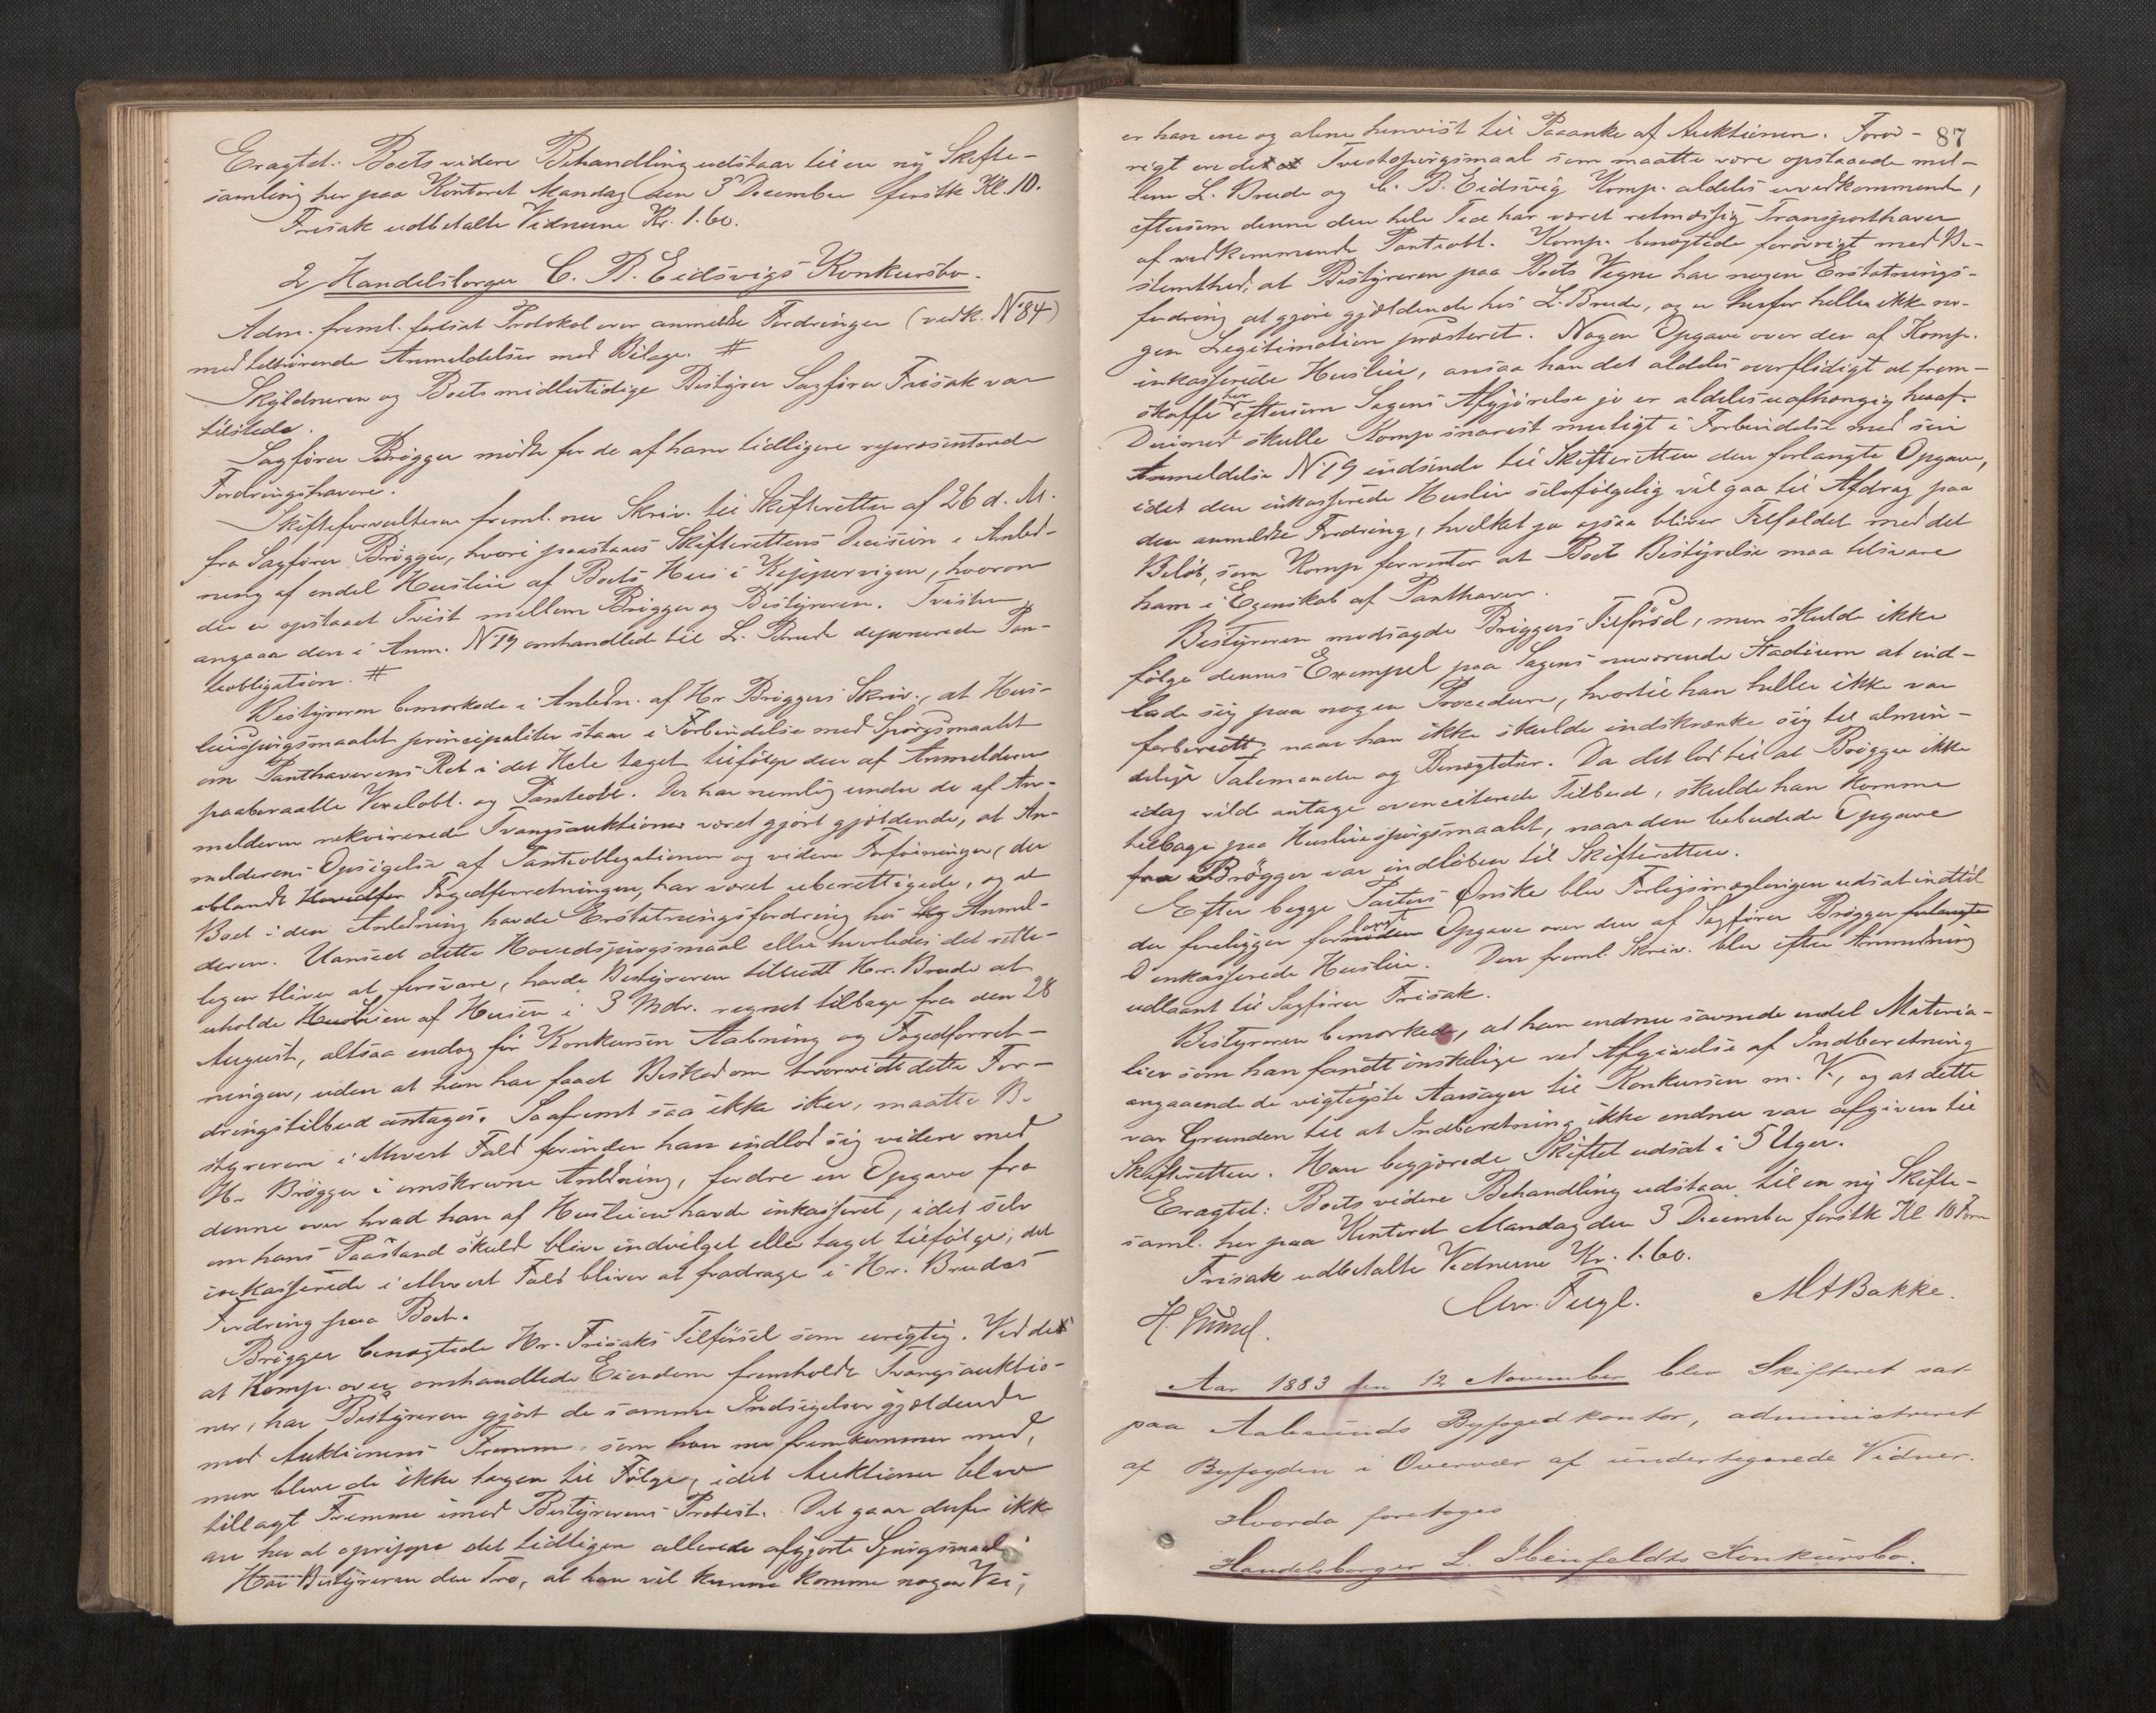 Eragtet: Boets videre Behandling udstaar til en ny Skifte-
samling her paa Kontoret Mandag den 3 December førstk Kl. 10.
Frisak udbetalte Vidnerne Kr. 1.60.
2/ Handelsborger C. B. Eidsvigs Konkursbo.
Adm. freml. fortsat Protokol over anmeldte Fordringer (vedk. N 84)
med tilhørende Anmeldelser med Bilage. #
Skyldneren og Boets midlertidige Bestyrer Sagfører Frisak var
tilstede.
Sagfører Brøgger mødte for de af ham tidligere repræsenterede
Fordringshavere.
Skifteforvalteren freml. nu Skriv. til Skifteretten af 26 d. M.
fra Sagfører Brøgger, hvori paastaaes Skifterettens Decision i Anled-
ning af endel Husleie af Boets Hus i Kippervigen, hvorom
der er opstaaet Tvist mellem Brøgger og Bestyreren. Tvisten
angaar den i Anm. N 79 omhandlede til L. Brude deponerede Pan-
teobligation. #
Bestyreren bemærkede i Anledn. af Hr Brøggers Skriv., at Hus-
leiespørgsmaalet principaliter staar i Forbindelse med Spørgsmaalet
om Panthaverens Ret i det Hele taget tilfølge den af Anmelderen
paaberaabte Vexelobl. og Panteobl. Der har nemlig under de af An-
melderen rekvirerede Tvangsauktioner været gjort gjældende, at An-
melderens Opsigelse af Panteobligationen og videre Forføininger, der
iblandt Fogedforretningen, har været uberettigede, og at
Boet i den Anledning havde Erstatningsfordring hos Anmel-
deren. Uanseet dette Hovedspørgsmaal eller hvorledes det rette-
ligen bliver at forsvare, havde Bestyreren tilbudt Hr. Brude at
uholde Husleien af Husene i 3 Mdr. regnet tilbage fra den 28
August, altsaa endog før Konkursens Aabning og Fogedforret-
ningen, uden at han har faaet Besked om hvorvidt dette For-
dringstilbud antages. Saafremt saa ikke sker, maatte Be-
styreren i Ethvert Fald forinden han indlod sig videre med
Hr. Brøgger i omskrevne Anledning, fordre en Opgave fra
denne over hvad han af Husleien havde inkasseret, idet selv
om hans Paastand skulde blive indvilget eller taget tilfølge, det
inkasserede i ethvert Fald bliver at fradrage i Hr. Brudes
Fordring paa Boet.
Brøgger benægtede Hr. Frisaks Tilførsel som urigtig. Ved de
at Komp. over omhandlede Eiendom fremholdte Tvangsauktio-
ner, har Bestyreren gjort de samme Indsigelser gjældende
mod Auktionens Fremme, som han nu fremkommer med,
men bleve de ikke tagen til Følge, idet Auktionen blev
tillagt Fremme imod Bestyrerens Protest. Det gaar derfor ikke
an her at oprippe det tidligere allerede afgjorte Spørgsmaal
Har Bestyreren den Tro, at han vil kunne komme nogen Vei,
87
er han ene og alene henvist til Paaanke af Auktionen. Forøv-
rigt ere det Tvistespørgsmaal som maatte være opstaaede mel-
lem L. Brude og C. B. Eidsvig Komp. aldeles uvedkommende,
eftersom denne den hele Tid har været retmæssig Transporthaver
af vedkommende Panteobl. Komp. benægtede forøvrigt med Be-
stemthed, at Bestyreren paa Boets Vegne har nogen Erstatnings-
fordring at gjøre gjældende hos L. Brude, og er herfor heller ikke no-
gen Legitimation præsteret. Nogen Opgave over den af Komp.
inkasserede Husleie, ansaa han det aldeles overflødigt at frem-
skaffe her eftersom Sagens Afgjørelse jo er aldeles uafhængig heraf.
Derimod skulle Komp snarest muligt i Forbindelse med sin
Anmeldelse N 79 indsende til Skifteretten den forlangte Opgave,
idet den inkasserede Husleie selvfølgelig vil gaa til Afdrag paa
den anmeldte Fordring, hvilket jo ogsaa bliver Tilfældet med det
Beløb, som Komp forventer at Boets Bestyrelse maa tilsvare
ham i Egenskab af Panthaver.
Bestyreren modsagde Brøggers Tilførsel, men skulde ikke
følge dennes Exempel paa Sagens nuværende Stadium at ind-
lade sig paa nogen Procedure, hvortil han heller ikke var
forberedt, naar han ikke skulde indskrænke sig til almin-
delige Talemaader og Benægtelser. Da det lod til at Brøgger ikke
idag vilde antage ovenciterede Tilbud, skulde han komme
tilbage paa Husleiespørgsmaalet, naar den bebudede Opgave
fra Brøgger var indløben til Skifteretten.
Efter begge Parters Ønske blev Forligsmæglingen udsat indtil
der foreligger forlangt Opgave over den af Sagfører Brøgger
inkasserede Husleie. Den freml. Skriv. blev efter Anmodning
udlaant til Sagfører Frisak.
Bestyreren bemærkede, at han endnu savnede endel Materia-
lier som han fandt ønskelige ved Afgivelse af Indberetning
angaaende de vigtigste Aarsager til Konkursen m. V., og at dette
var Grunden til at Indberetning ikke endnu var afgiven til
Skifteretten. Han begjærede Skiftet udsat i 5 Uger.
Eragtet: Boets videre Behandling udstaar til en ny Skifte-
saml. her paa Kontoret Mandag den 3 December førstk Kl 10 Form
Frisak udbetalte Vidnerne Kr. 1.60.
Chr. Fugl. M A Bakke.
Aar 1883 den 12 November blev Skifteret sat
paa Aalesunds Byfogedkontor, administreret
af Byfogden i Overvær af undertegnede Vidner.
Hvorda foretoges
Handelsborger L. Ibenfeldts Konkursbo.